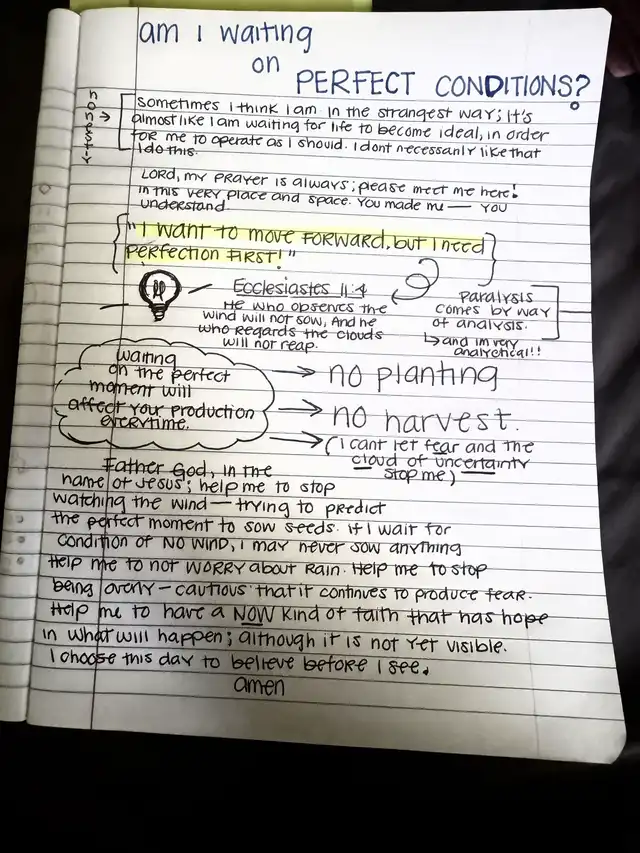 am I waiting
on
PERFECT CONDITIONS?
honesty
Sometimes I think I am. In the strangest way; it's
almost like I am waiting for life to become ideal, in order
for me to operate as I should. I dont necessarily like that
I do this.
Lord, my prayer is always; please meet me here!
In this very place and space. You made me — you
understand.
"I want to move forward, but I need
perfection first!"
Ecclesiastes 11:4
He who observes the
wind will not sow, And he
who regards the clouds
will not reap.
Paralysis
comes by way
of analysis.
and im very
analytical!!
waiting
on the perfect
moment will
affect your production
everytime.
no planting
no harvest.
(I cant let fear and the
cloud of uncertainty
stop me)
Father God, in the
name of Jesus; help me to stop
watching the wind — trying to predict
the perfect moment to sow seeds. If I wait for
condition of NO WIND, I may never sow anything
Help me to not WORRY about Rain. Help me to stop
being overly-cautious that it continues to produce fear.
Help me to have a NOW kind of faith that has hope
in what will happen; although it is not yet visible.
I choose this day to believe before I see.
amen